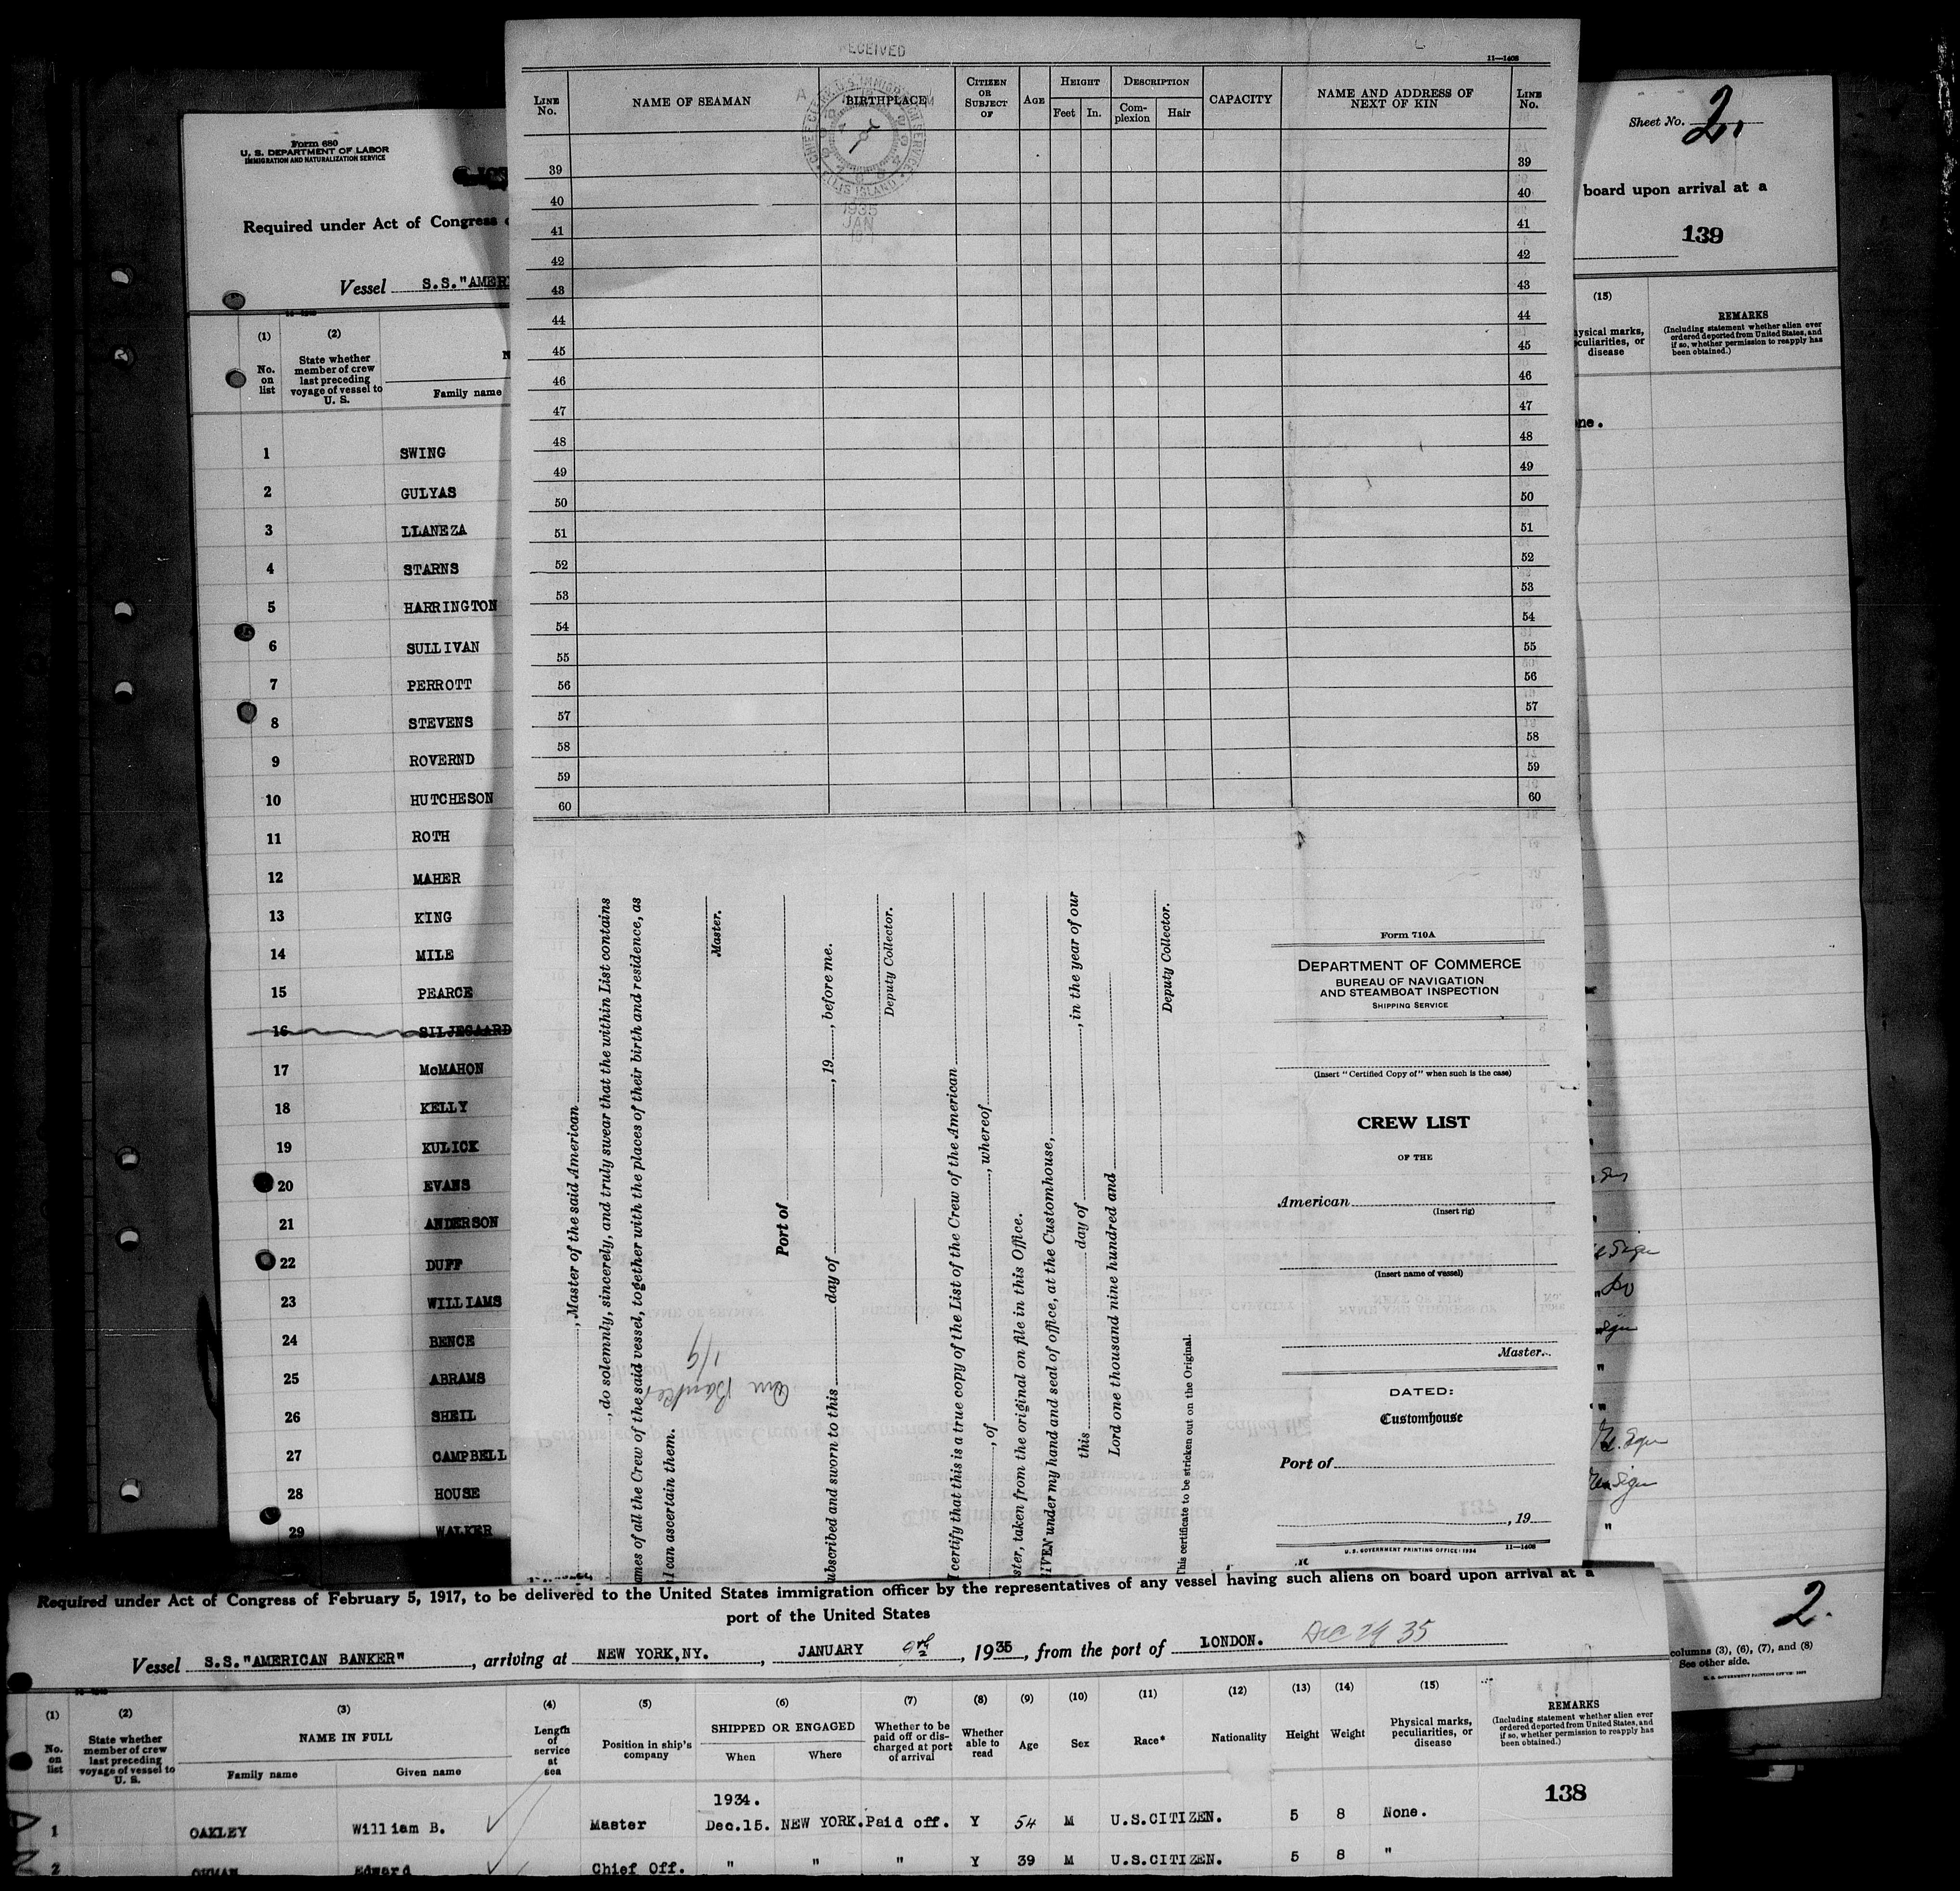 Form 680
U. S. DEPARTMENT OF LABOR
IMMIGRATION AND NATURALIZATION SERVICE
Required under Act of Congress
Vessel S.S."AMER
(1) (2)
No. on list
State whether member of crew last preceding voyage of vessel to U. S.
Family name
1 SWING
2 GULYAS
3 LLANEZA
4 STARNS
5 HARRINGTON
6 SULLIVAN
7 PERROTT
8 STEVENS
9 ROVERND
10 HUTCHESON
11 ROTH
12 MAHER
13 KING
14 MILE
15 PEARCE
16 SILJEGAARD
17 McMAHON
18 KELLY
19 KULICK
20 EVANS
21 ANDERSON
22 DUFF
23 WILLIAMS
24 BENCE
25 ABRAMS
26 SHEIL
27 CAMPBELL
28 HOUSE
29 WALKER
RECEIVED
11—1406
LINE No.
NAME OF SEAMAN
BIRTHPLACE
CITIZEN OR SUBJECT OF
AGE
HEIGHT
Feet In.
DESCRIPTION
Complexion Hair
CAPACITY
NAME AND ADDRESS OF NEXT OF KIN
LINE No.
U.S. IMMIGRATION SERVICE
ELLIS ISLAND
1935
JAN
39 39
40 40
41 41
42 42
43 43
44 44
45 45
46 46
47 47
48 48
49 49
50 50
51 51
52 52
53 53
54 54
55 55
56 56
57 57
58 58
59 59
60 60
, Master of the said American
, do solemnly, sincerely, and truly swear that the within List contains
ames of all the Crew of the said vessel, together with the places of their birth and residence, as
I can ascertain them.
Master.
Port of
ubscribed and sworn to this day of , 19 , before me.
Deputy Collector.
I certify that this is a true copy of the List of the Crew of the American
, of , whereof
ster, taken from the original on file in this Office.
GIVEN under my hand and seal of office, at the Customhouse,
this day of , in the year of our
Lord one thousand nine hundred and
Deputy Collector.
This certificate to be stricken out on the Original.
Am Banker
1/9
Form 710A
DEPARTMENT OF COMMERCE
BUREAU OF NAVIGATION
AND STEAMBOAT INSPECTION
SHIPPING SERVICE
(Insert "Certified Copy of" when such is the case)
CREW LIST
OF THE
American
(Insert rig)
(Insert name of vessel)
Master.
DATED:
Customhouse
Port of
, 19
U. S. GOVERNMENT PRINTING OFFICE: 1934 11—1406
Sheet No. 2.
board upon arrival at a
139
(15)
ysical marks, culiarities, or disease
REMARKS
(Including statement whether alien ever ordered deported from United States, and if so, whether permission to reapply has been obtained.)
ne.
2.
columns (3), (6), (7), and (8)
See other side.
Required under Act of Congress of February 5, 1917, to be delivered to the United States immigration officer by the representatives of any vessel having such aliens on board upon arrival at a
port of the United States
Vessel S.S."AMERICAN BANKER" , arriving at NEW YORK,NY. , JANUARY 9th , 1935 , from the port of LONDON. Dec 29 35
(1) (2) (3) (4) (5) (6) (7) (8) (9) (10) (11) (12) (13) (14) (15)
No. on list
State whether member of crew last preceding voyage of vessel to U. S.
NAME IN FULL
Family name Given name
Length of service at sea
Position in ship's company
SHIPPED OR ENGAGED
When Where
Whether to be paid off or discharged at port of arrival
Whether able to read
Age
Sex
Race*
Nationality
Height
Weight
Physical marks, peculiarities, or disease
REMARKS
(Including statement whether alien ever ordered deported from United States, and if so, whether permission to reapply has been obtained.)
138
1934.
1 OAKLEY William B. Master Dec.15. NEW YORK. Paid off. Y 54 M U.S.CITIZEN. 5 8 None.
2 Edward Chief Off. " " " Y 39 M U.S.CITIZEN. 5 8 "